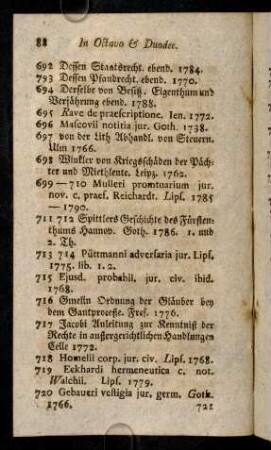 88 In Octavo & Duodec.
692 Dessen Staatsrecht. ebend. 1784.
793 Dessen Pfandrecht. ebend. 1770.
694 Derselbe von Besitz, Eigenthum und
Verjährung ebend. 1788.
695 Rave de praescriptione. Ien. 1772.
696 Mascovii notitia jur. Goth. 1738.
697 von der Lith Abhandl. von Steuern.
Ulm 1766.
698 Winkler von Kriegsschäden der Päch-
ter und Miethleute. Leipz. 1762.
699—710 Mulleri promtuarium jur.
nov. c. praef. Reichardt. Lips. 1785
— 1790.
711 712 Spittlers Geschichte des Fürsten-
thums Hannov. Goth. 1786. 1. und
2. Th.
713 714 Püttmanni adversaria jur. Lips.
1775. lib. 1. 2.
715 Ejusd. probabil. jur. civ. ibid.
1768.
716 Gmelin Ordnung der Gläuber bey
dem Gantprocesse. Frcf. 1776.
717 Jacobi Anleitung zur Kenntniß der
Rechte in außergerichtlichen Handlungen
Celle 1772.
718 Homelii corp. jur. civ. Lips. 1768.
719 Eckhardi hermeneutica c. not.
Walchii. Lips. 1779.
720 Gebaueri vestigia jur. germ. Goth.
1766. 721